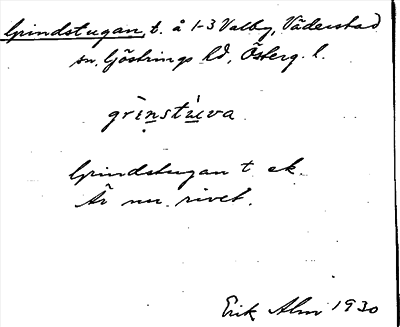 Grindstugan t. å 1-3 Valby, Väderstad
sn. Göstrings hd, Österg. l.
grinstùva
Grindstugan t. ek.
Är nu rivet.
Erik Alm 1930